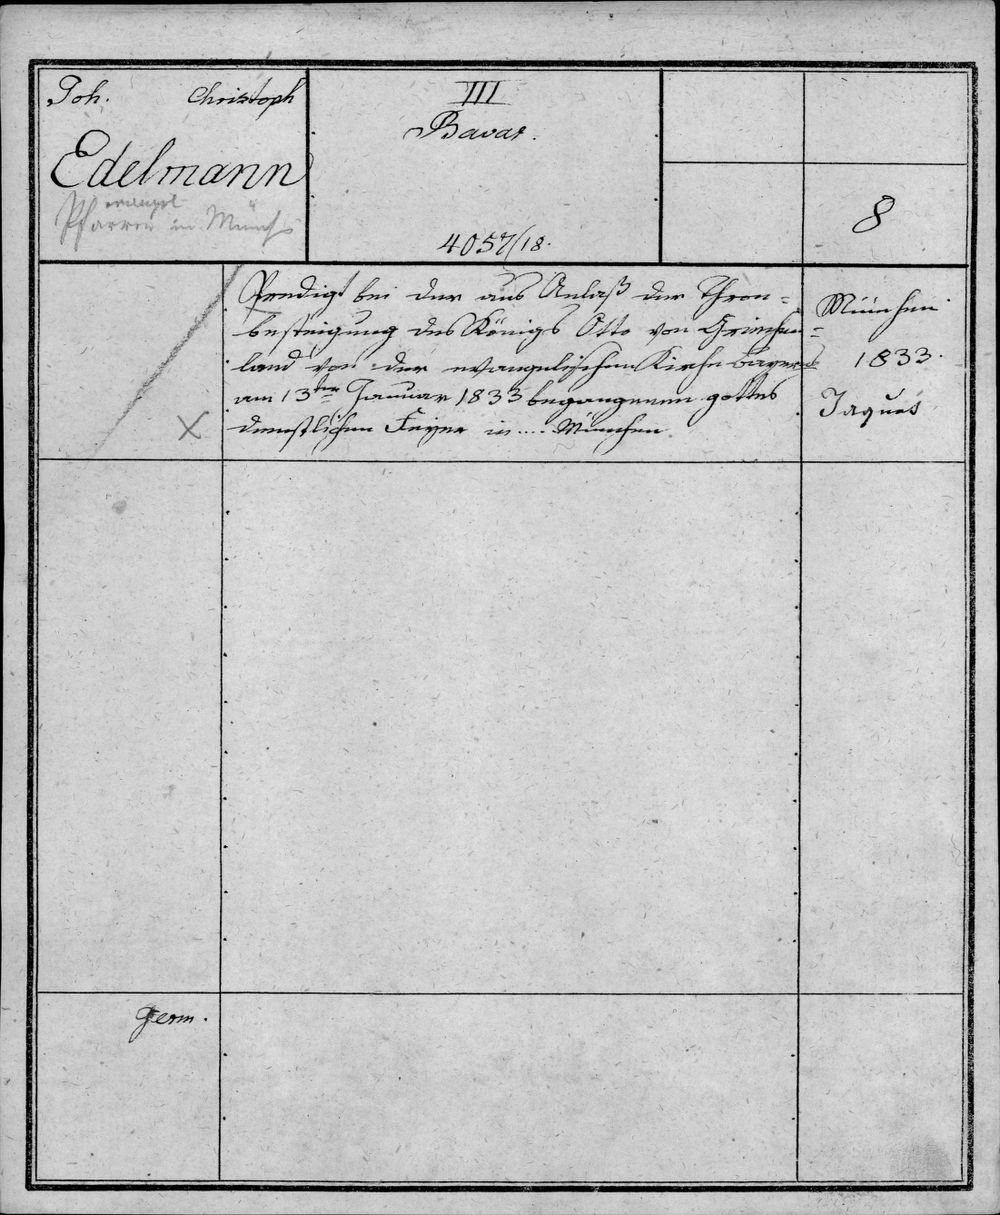 Joh. Christoph
Edelmann
evangel.
Pfarrer in Münch
III
Bavar.
4057/18.
8
Predigt bei der aus Anlaß der Thron=
besteigung des Königs Otto von Griechen=
land von der evangelischen Kirche Bayerns
am 13ten Januar 1833 begangenen gottes
dienstlichen Feyer in .... München
München
1833.
Jaques
X
Germ.